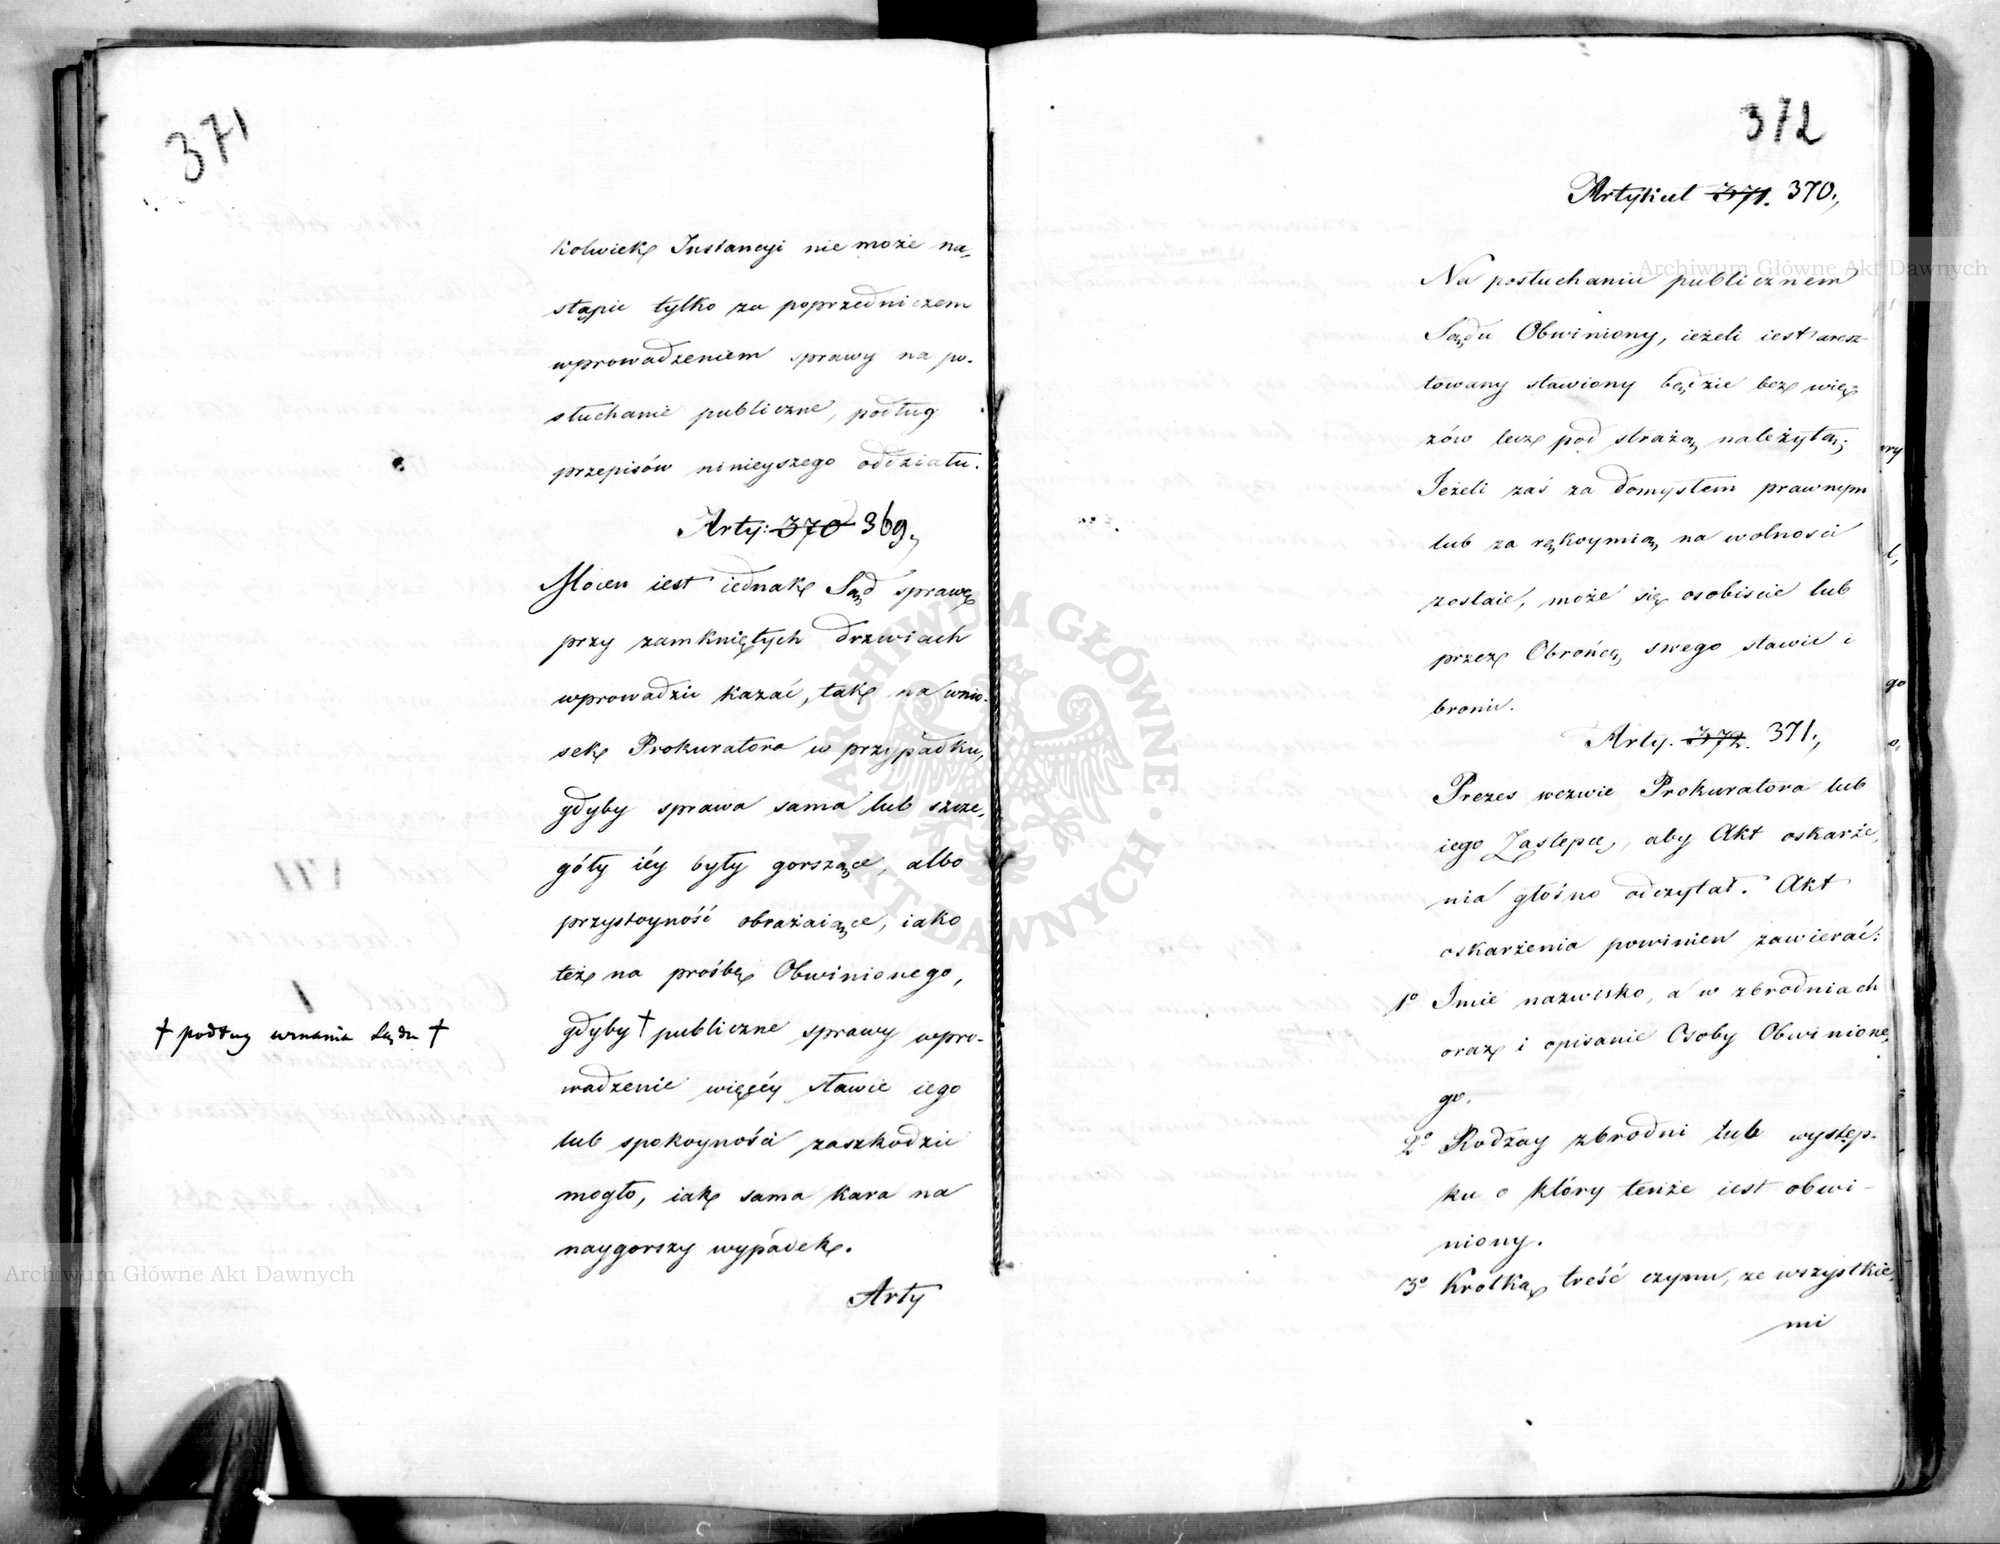 371
kolwiek Instancyi nie może na-
stąpić tylko za poprzedniczem
wprowadzeniem sprawy na po-
słuchanie publiczne, podług
przepisów ninieyszego oddziału.
Arty: 370 369.
Mocen iest iednak Sąd sprawę
przy zamkniętych drzwiach
wprowadzić kazać, tak na wnio-
sek Prokuratora w przypadku,
gdyby sprawa sama lub szcze-
góły iéy były gorszące, albo
przystoyność obrażaiące, iako
też na prośbę Obwinionego,
gdyby † publiczne sprawy wpro-
† podług uznania Sądu †
wadzenie więcéy sławie iego
lub spokoyności zaszkodzić
mogło, iak sama kara na
naygorszy wypadek.
Arty
372
Artykuł 371. 370.
Na posłuchaniu publicznem
Sądu Obwiniony, ieżeli iest aresz-
towany stawiony będzie bez wię-
zów lecz pod strażą należytą;
Jeżeli zaś za domysłem prawnym
lub za rękoymią na wolności
zostaie, może się osobiście lub
przez Obrońcę swego stawić i
bronić.
Arty. 372. 371.
Prezes wezwie Prokuratora lub
iego Zastępcę, aby Akt oskarże-
nia głośno odczytał. Akt
oskarżenia powinien zawierać:
1o Imie nazwisko, a w zbrodniach
oraz i opisanie Osoby Obwinione-
go.
2o Rodzay zbrodni lub występ-
ku o który tenże iest obwi-
niony.
3o Krótką treść czynu, ze wszystkie-
mi
Archiwum Główne Akt Dawnych
Archiwum Główne Akt Dawnych
ARCHIWUM GŁÓWNE AKT DAWNYCH